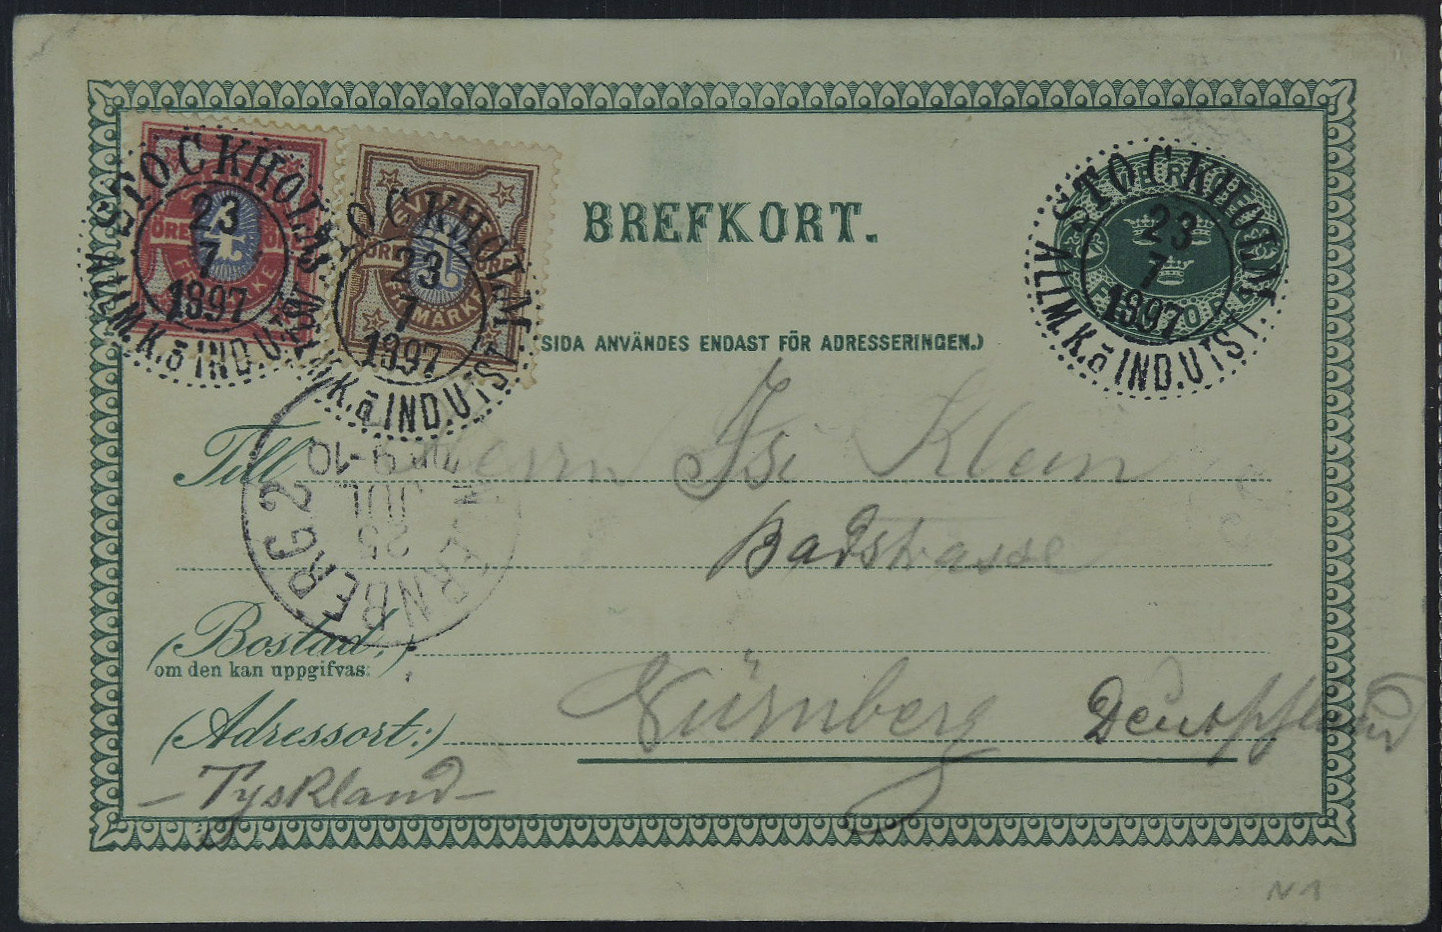 STOCKHOLM
23
7
1897
ALLM.K.ō IND.UTST.
ÖRE 4 ÖRE
FRIMÄRKE
STOCKHOLM
23
7
1897
ALLM.K.ō IND.UTST.
SVERIGE
ÖRE 1 ÖRE
FRIMÄRKE
BREFKORT.
SVERIGE
FEM ÖRE
STOCKHOLM
23
7
1897
ALLM.K.ō IND.UTST.
(SIDA ANVÄNDES ENDAST FÖR ADRESSERINGEN.)
Till Herrn Isi Klein
Badstrasse
NUERNBERG 2
25
JUL
9-10
(Bostad,)
om den kan uppgifvas:
(Adressort:) Nürnberg Deutschland
- Tyskland -
N 1